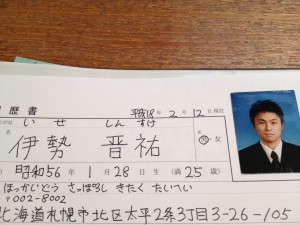 歴書 平成18年 2月 12日現在
いせ しんすけ
名 伊勢 晋祐 男・女
昭和56年 1月 28日生 (満 25歳)
ほっかいどう さっぽろし きたく たいへい
〒002-8002
北海道札幌市北区太平2条3丁目3-26-105